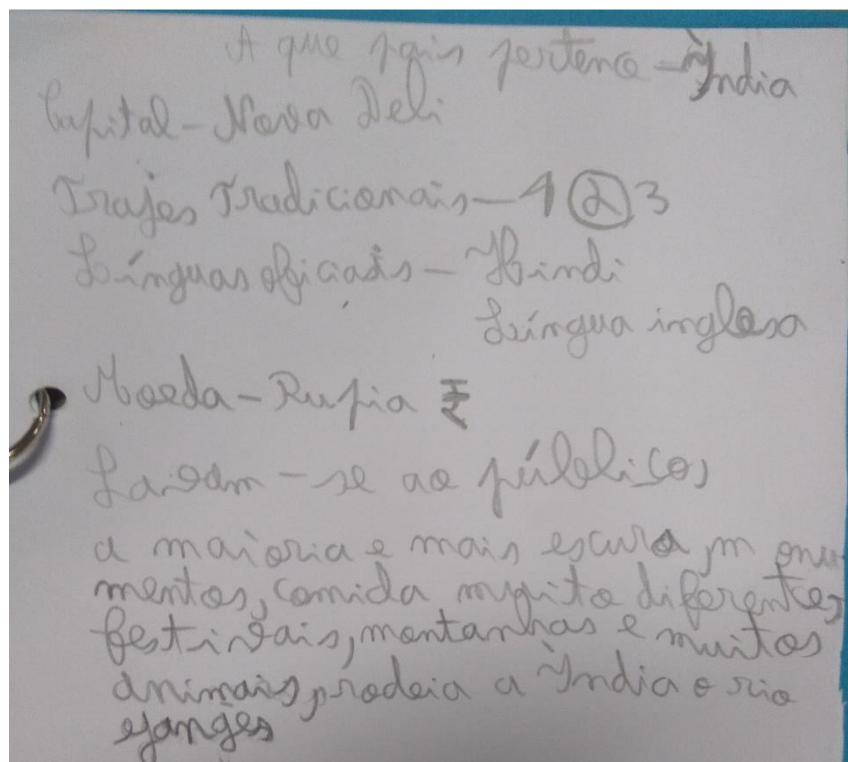 A que país pertence - Índia
Capital - Nova Deli
Trajes Tradicionais - 1 ② 3
Línguas oficiais - Hindi
Língua inglesa
Moeda - Rupia ₹
Lavam-se ao públicos
a maioria e mais escura, monu
mentos, comida muito diferentes,
festivais, montanhas e muitos
animais, rodeia a Índia o rio
ganges